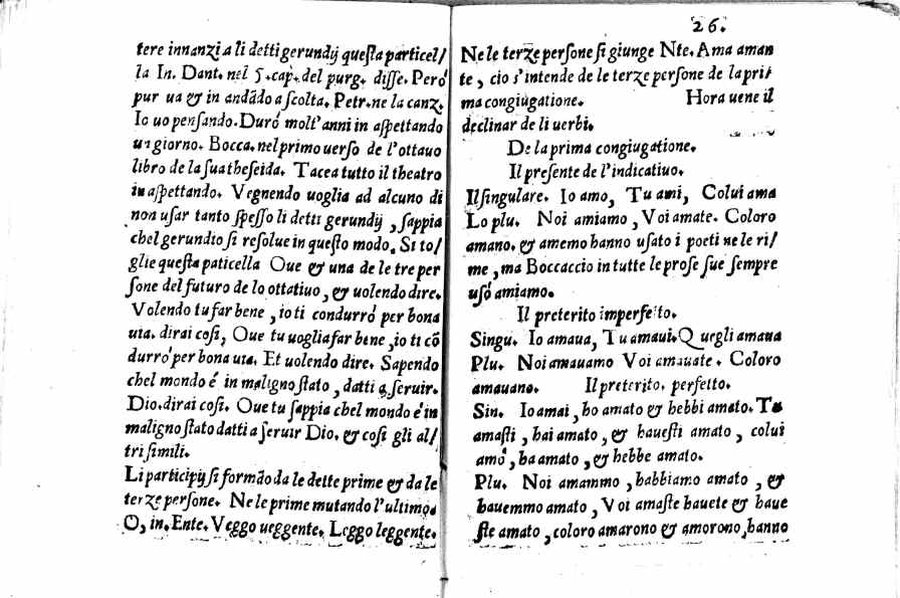 tere innanzi a li detti gerundij questa particel/
la In. Dant. nel 5. cap. del purg. disse. Peró
pur ua & in andādo ascolta. Petr. ne la canz.
Io uo pensando. Duró molt'anni in aspettando
un giorno. Bocca. nel primo uerso de l'ottauo
libro de la sua theseida. Tacea tutto il theatro
in aspettando. Vegnendo uoglia ad alcuno di
non usar tanto spesso li detti gerundij, sappia
chel gerundio si resolue in questo modo. Si to/
glie questa paticella Oue & una de le tre per
sone del futuro de lo ottatiuo, & uolendo dire.
Volendo tu far bene, io ti condurró per bona
uia. dirai cosi, Oue tu uogli a far bene, io ti cō
durró per bona uia. Et uolendo dire. Sapendo
chel mondo é in maligno stato, datti a seruir.
Dio. dirai cosi. Oue tu sappia chel mondo é in
maligno stato datti a seruir Dio. & cosi gli al/
tri simili.
Li participij si formāo da le dette prime & da le
terze persone. Ne le prime mutando l'ultimo
O, in. Ente. Veggo ueggente. Leggo leggente.
26.
Ne le terze persone si giunge Nte. Ama aman
te, cio s'intende de le terze persone de la pri/
ma congiugatione. Hora uene il
declinar de li uerbi.
De la prima congiugatione.
Il presente de l'indicatiuo.
Il singulare. Io amo, Tu ami, Colui ama
Lo plu. Noi amiamo, Voi amate. Coloro
amano. & amemo hanno usato i poeti ne le ri/
me, ma Boccaccio in tutte le prose sue sempre
usó amiamo.
Il preterito imperfeto.
Singu. Io amaua, Tu amaui. Quegli amaua
Plu. Noi amauamo Voi amauate. Coloro
amauano. Il preterito. perfetto.
Sin. Io amai, ho amato & hebbi amato. Tu
amasti, hai amato, & hauesti amato, colui
amó, ha amato, & hebbe amato.
Plu. Noi amammo, habbiamo amato, &
hauemmo amato, Voi amaste hauete & haue
ste amato, coloro amarono & amorono, hanno